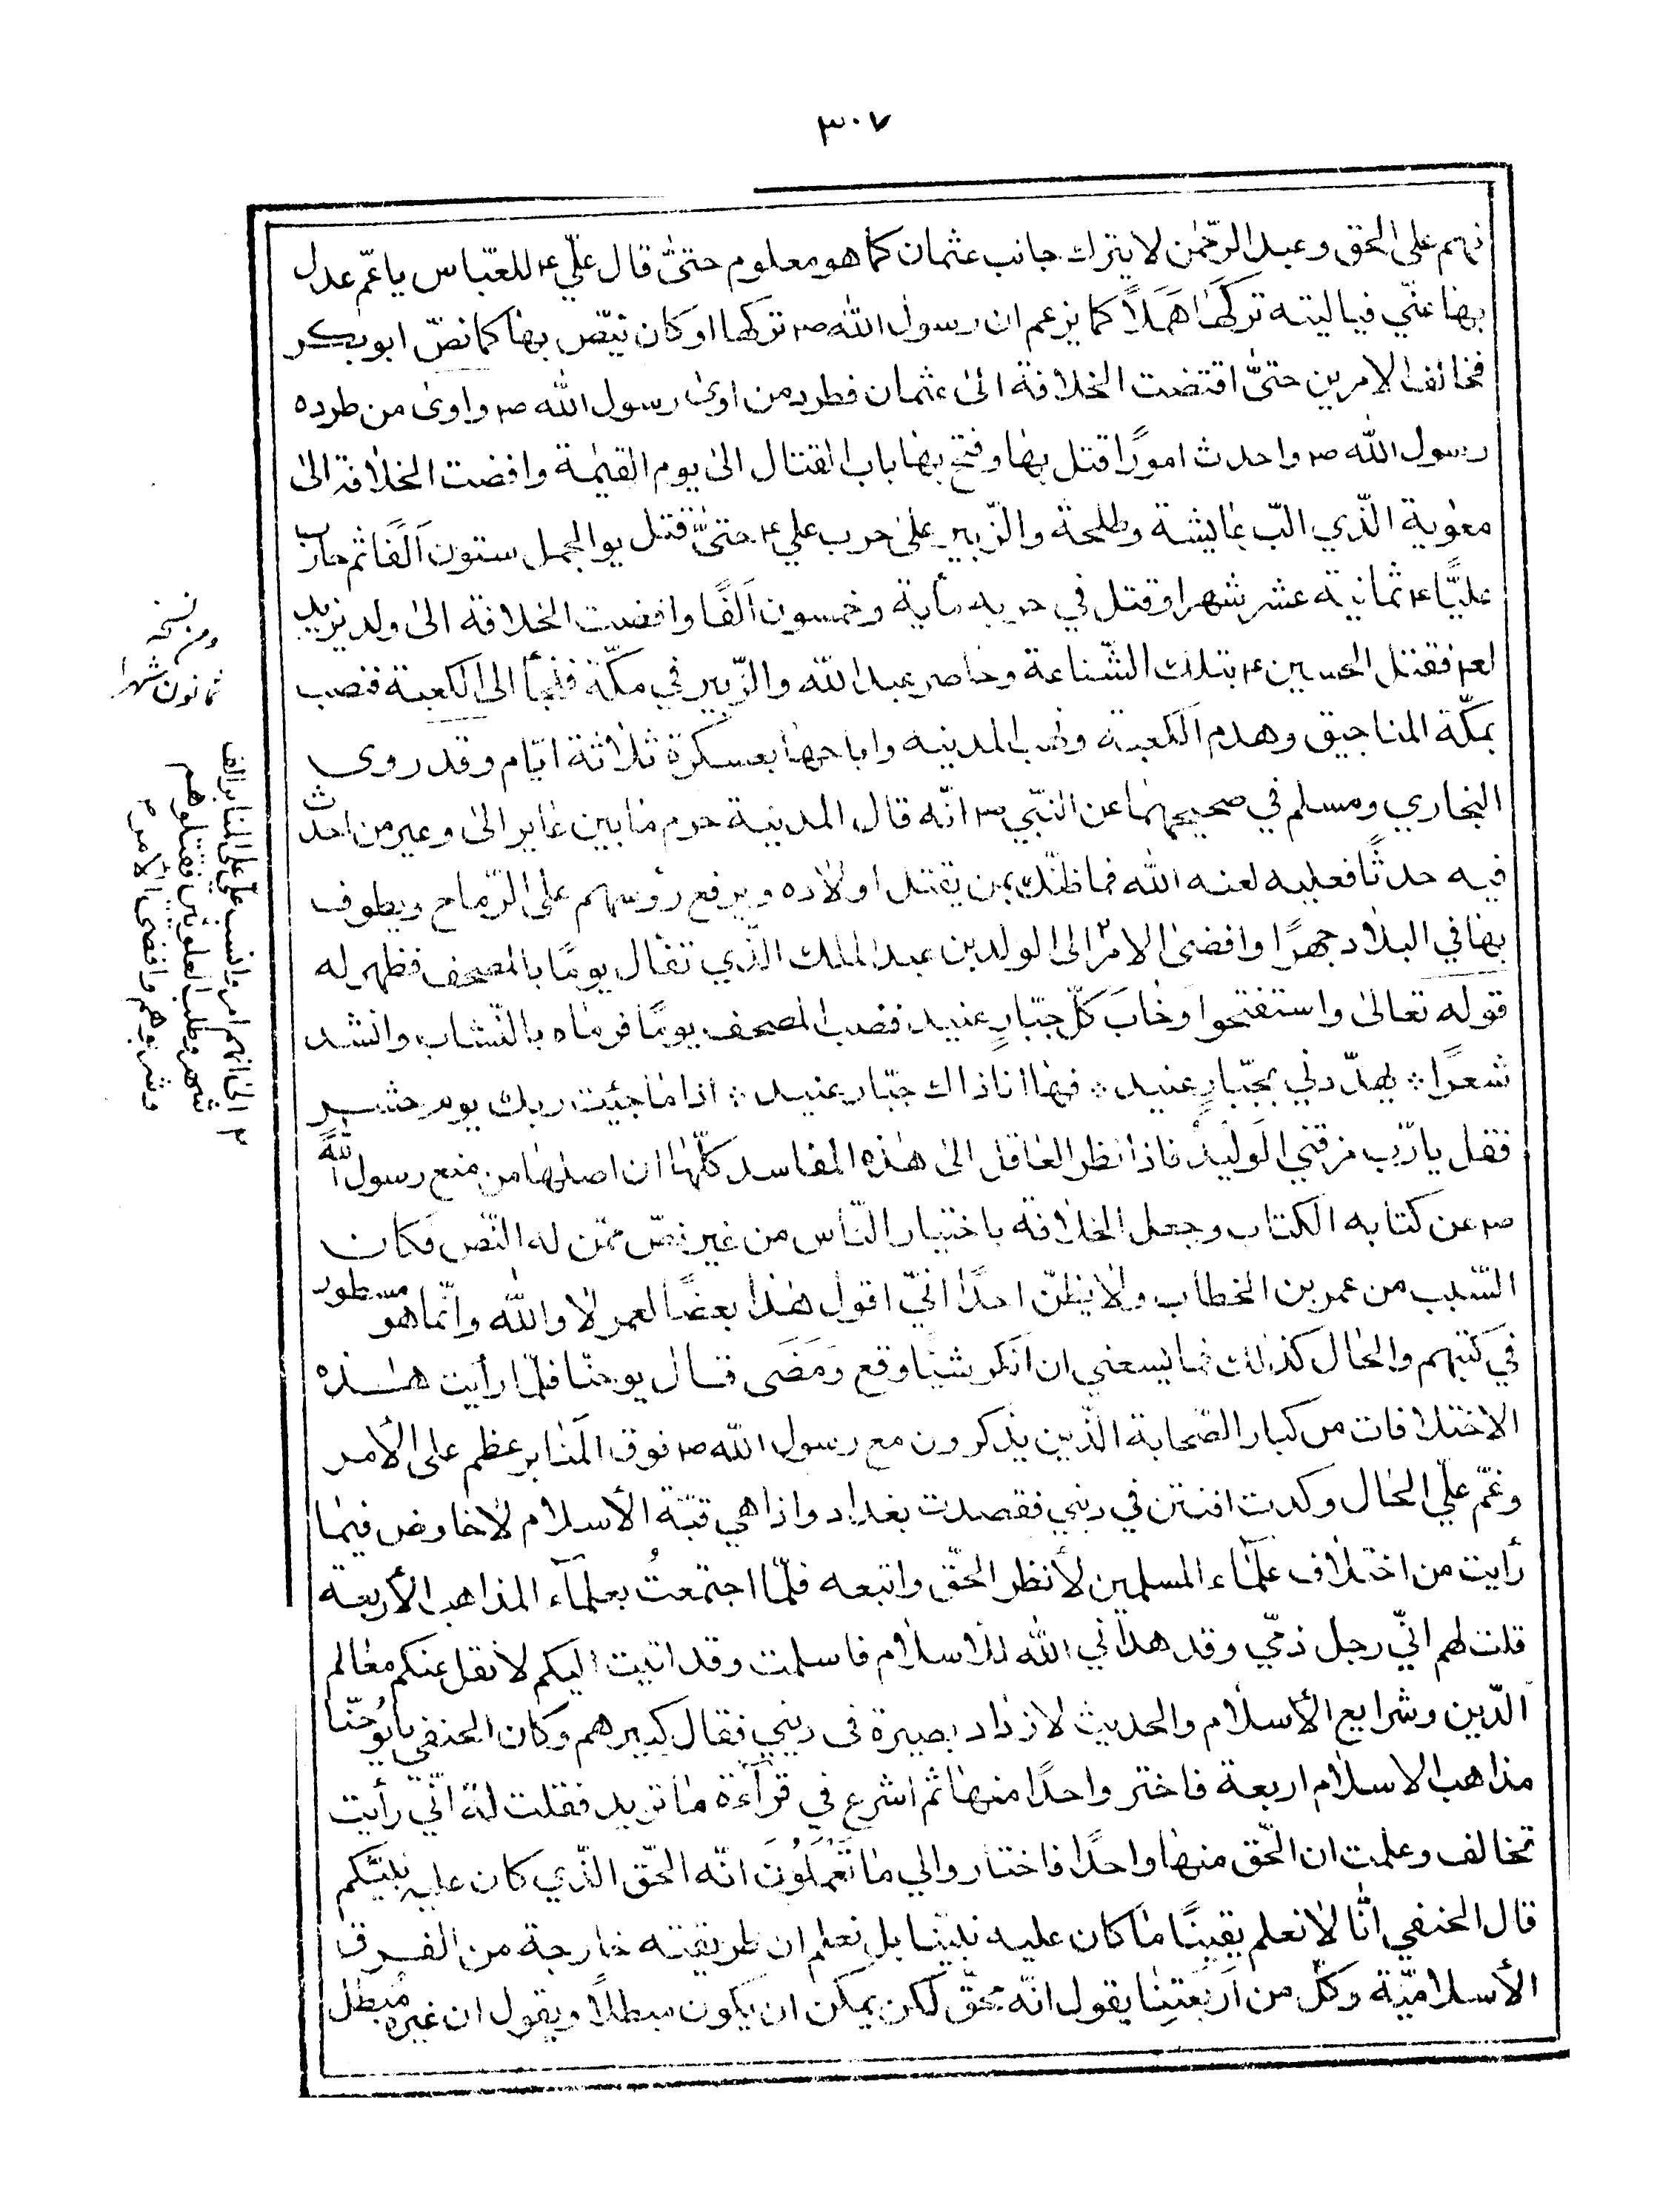 ٣٠٧
فهم على الحق وعبد الرّحمٰن لا يترك جانب عثمان كما هو معلوم حتىّٰ قال علّي ع للعبّاس يا عمّ عدل
بها عنّي فيا ليته تركَهٰا هَمَلاً كما يزعم ان رسول الله ص تركها او كان نيّص بها كما نصّ ابو بكر
فخالف الامرين حتىّٰ اقتضت الخلافة الىٰ عثمان فطرد من اوىٰ رسول الله ص واوىٰ من طرده
رسول الله ص واحدث امورًا قتل بها وفتح بها باب القتال الىٰ يوم القيٰمة وافضت الخلافة الىٰ
معٰوية الّذي البّ عٰايشة وطلحة والزّبير علىٰ حرب علي ع حتىّٰ قتل يوالجمل ستون اَلْفًا ثم حارب
عليًّا ع ثمانية عشر شهرا وقتل في حربه مأية وخمسون اَلْفًا وافضت الخلافة الىٰ ولد يزيد
لعم فقتل الحسين ع بتلك الشّناعة وحاصر عبد الله والزّبير في مكّة فلجأ الى الكعبة فنصب
بمكّة المناجيق وهدم الكعبة ونهب المدينه واباحهٰا بعسكرة ثلاثة ايّام وقد روى
البخاري ومسلم في صحيحيهما عن النّبي ص انّه قال المدينة حرم مٰا بين عٰاير الىٰ وعير من احدث
فيه حدثًا فعليه لعنه الله فما ظنّك بمن يقتل اولاده ويرفع رؤسهم على الرّماح ويطوف
بها في البلاد جهرًا وافضىٰ الامر٢ الى الوليد بن عبد الملك الّذي تفال يومًا بالمصحف فظهر له
قوله تعالىٰ واستفتحوا وخٰابَ كلّ جبّارٍ عنيد فنصب المصحف يومًا فرمٰاه بالنّشاب وانشد
شعرًا ⁘ يهدّدني بجبّارٍ عنيد ⁘ فها انا ذاك جبّار عنيد ⁘ اذا مٰا جئيت ربك يوم حشر
فقل يا رّب مزقني الوَليد فاذا نظر العٰاقل الىٰ هٰذه المفاسد كلّهٰا ان اصلهٰا من منع رسول الله
ص عن كتابه الكتاب وجعل الخلافة باختيار النّاس من غير نصّ ممّن له النّص فكان
السّبب من عمر بن الخطاب ولا يظنّ احدًا انّي اقول هٰذا بعضًا لعمر لا والله وانّما هو مسطور
في كتبهم والحٰال كذلك فما يسعني ان انكر شيئا وقع وَمَضَى قال يوحنّا فلمّا رأيت هٰذه
الاختلافات من كبار الصّحابة الّذين يذكرون مع رسول الله ص فوق المنابر عظم على الأمر
وغمّ علّي الحٰال وكدت افتتن في ديني فقصدت بغداد واذا هي قبّة الأسلام لاخاوض فيمٰا
رأيت من اختلاف علمٰاء المسلمين لأنظر الحّق واتبعه فلمّا اجتمعتُ بعلمآء المذاهب الأربعة
قلت لهم انّي رجل ذمّي وقد هدٰاني الله للاسلام فاسلمت وقد اتيت اليكم لانقل عنكم معٰالم
الدّين وشرايع الأسلام والحديث لازداد بصيرة فى ديني فقال كبيرهم وكان الحنفي يا يُوحنّا
مذاهب الاسلام اربعة فاختر واحدًا منهٰا ثم اشرع في قرٰآءة مٰا تريد فقلت له انّي رأيت
تخالف وعلمت ان الحّق منهٰا واحدًا فاختاروا لي مٰا تَعْمَلُونَ انّه الحّق الّذي كان عليه نبيّكم
قال الحنفي انّا لا نعلم يقينًا مٰا كان عليه نبيّنا بل نعلم ان طريقته خارجة من الفرق
الأسلاميّة وكلّ من اَربَعَتِنٰا يقول انّه محقّ لكن يمكن ان يكون مبطلاً ويقول ان غيره مُبطل
ومن نسخه
ثمانون شهرا
٢ الى انهم امر والسب علي على المنابر الف
شهر وطلب العلويين فقتلوهم
وشردوهم وافضى الأمر م